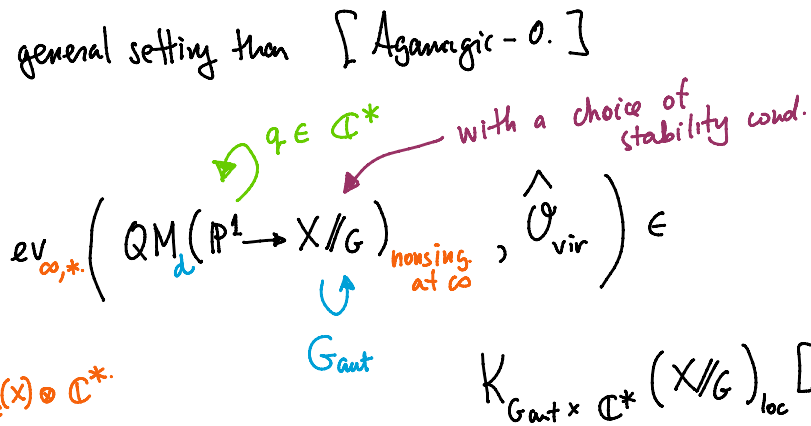 general setting than [Aganagic - O.]
q ∈ ℂ*
with a choice of
stability cond.
ev_{∞,*} ( QM_d (ℙ¹ → X//G)_{nonsing. at ∞}, Ô_vir ) ∈
G_aut
(X) ⊗ ℂ*.
K_{G_aut × ℂ*} (X//G)_{loc} [